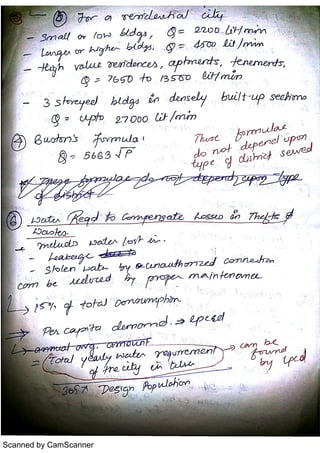 ⑤ For a residential city
- Small or low bldgs, Q = 2200 lit/min
- Larger or higher bldgs, Q = 4500 lit/min
- High value residences, aptments, tenements,
Q = 7650 to 13500 lit/min
- 3 storeyed bldgs in densely built-up sections
Q = upto 27000 lit/min
④ Buston's Formula:
Q = 5663 √P
These formulae
do not depend upon
type of district served
These formulae do not depend upon type
of district
⑥ Water Reqd to Compensate Losses in Thefts &
Wastes.
→ includes water lost in.
- Leakage due to
- Stolen water by unauthorized connection
can be reduced by proper maintenance
→ 15% of total consumption
→ Per capita demand. → lpcd
→ annual avg. amount
= Total yearly water requirement
of the city in litres
365 x Design Population
→ can be
found
by lpcd
Scanned by CamScanner